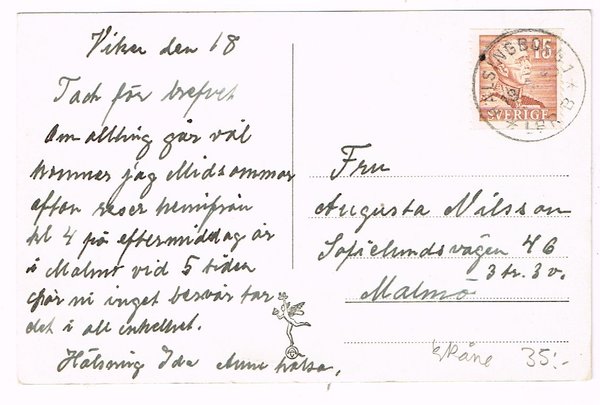 Viken den 18
Tack för brefvet
Om allting går väl
kommer jag Midsommar
afton reser hemifrån
kl 4 på eftermiddag är
i Malmö vid 5 tiden
Gör ni inget besvär tar
det i all enkelhet.
Hälsning Ida Anna hälsa.
15
SVERIGE
HÄLSINGBORG 1
Fru
Augusta Nilsson
Sofielundsvägen 46
3 tr. 3 v.
Malmö
Skåne
35:-